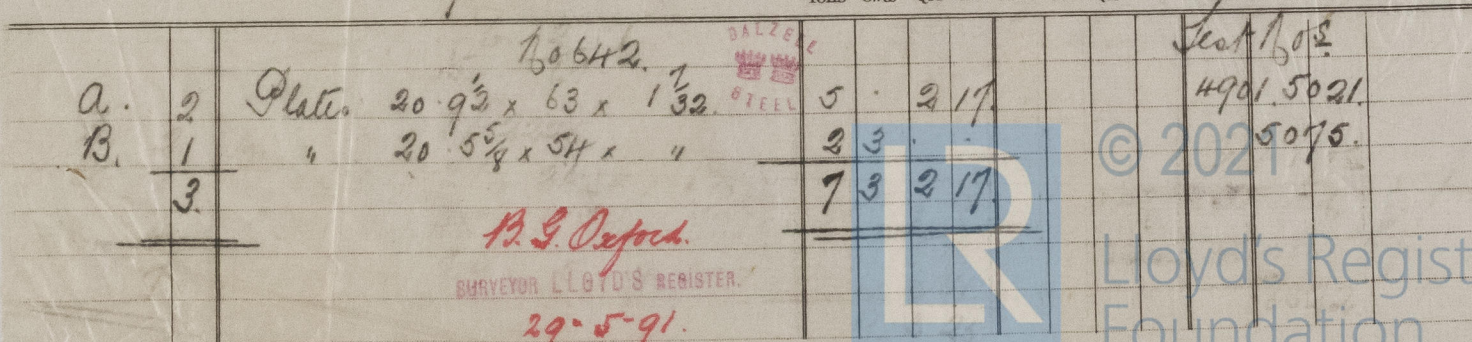 No 642. DALZELL STEEL Test Nos
A. 2 Plates 20.9½ x 63 x 1 7/32. 5 . 2 17. 4901.5021.
B. 1 " 20 5⅝ x 54 x " 2 3 . . 5075.
3. 7 3 2 17.
B. G. Oxford.
SURVEYOR LLOYD'S REGISTER.
29-5-91.
© 2021
LR
Lloyd's Regist
Foundation